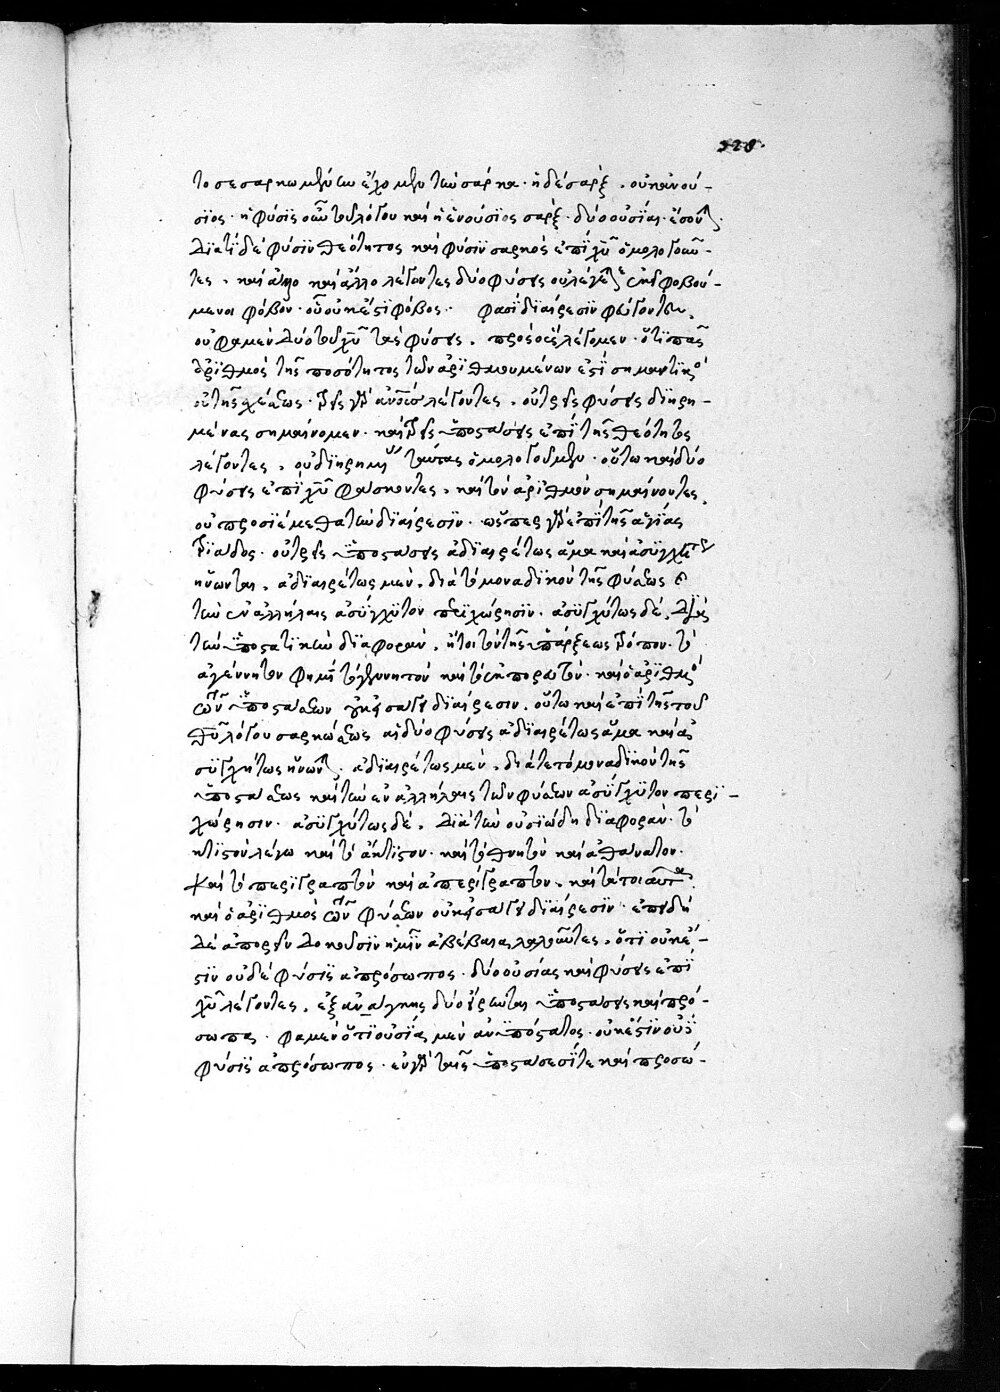 328
το σεσαρκωμένην ἔχομεν τὴν σάρκα· ἡ δὲ σάρξ, οὐκ ἀνού-
σιος· ἡ φύσις οὖν τοῦ λόγου καὶ ἡ ἐνούσιος σὰρξ, δύο οὐσίαι ἔσονται.
διατί δὲ φύσιν θεότητος καὶ φύσιν σαρκὸς ἐπὶ χυ ὁμολογοῦν-
τες, καὶ ἄλλο καὶ ἄλλο λέγοντες δύο φύσεις οὐ λέγετε ἐκεῖ φοβού-
μενοι φόβον· οὗ οὐκ ἔστι φόβος. φασὶ διαίρεσιν φεύγοντες,
οὐ φαμὲν δύο τοῦ χυ τὰς φύσεις. πρὸς οὓς λέγομεν· ὅτι πᾶς
ἀριθμὸς τῆς ποσότητος τῶν ἀριθμουμένων ἐστὶ σημαντικὸς
οὐ τῆς σχέσεως· τρεῖς γὰρ ἀνους λέγοντες, οὐ τρεῖς φύσεις διῃρη-
μένας σημαίνομεν· καὶ τρεῖς ὑποστάσεις ἐπὶ τῆς θεότητος
λέγοντες, οὐ διῃρημένας ταύτας ὁμολογοῦμεν· οὕτω καὶ δύο
φύσεις ἐπὶ χυ φάσκοντες, καὶ τὸν ἀριθμὸν σημαίνοντες,
οὐ προσιέμεθα τὴν διαίρεσιν· ὥσπερ γὰρ ἐπὶ τῆς ἁγίας
τριάδος· οὐ τρεῖς ὑποστάσεις ἀδιαιρέτως ἅμα καὶ ἀσυγχύτως
ἥνωνται, ἀδιαιρέτως μὲν, διὰ τὸ μοναδικὸν τῆς φύσεως καὶ
τὴν ἐν ἀλλήλαις ἀσύγχυτον περιχώρησιν· ἀσυγχύτως δὲ, διὰ
τὴν ὑποστατικὴν διαφορὰν, ἤτοι τὸν τῆς ὑπάρξεως τρόπον· τὸ
ἀγέννητον φημὶ τὸ γεννητὸν καὶ τὸ ἐκπορευτὸν· καὶ ὁ ἀριθμὸς
τῶν ὑποστάσεων οὐκ εἰσάγει διαίρεσιν· οὕτω καὶ ἐπὶ τῆς τοῦ
θυ λόγου σαρκώσεως αἱ δύο φύσεις ἀδιαιρέτως ἅμα καὶ ἀ-
συγχύτως ἥνωνται· ἀδιαιρέτως μὲν, διά τε τὸ μοναδικὸν τῆς
ὑποστάσεως καὶ τὴν ἐν ἀλλήλαις τῶν φύσεων ἀσύγχυτον περι-
χώρησιν· ἀσυγχύτως δὲ, διὰ τὴν οὐσιώδη διαφορὰν· τὸ
κτιστὸν λέγω καὶ τὸ ἄκτιστον· καὶ τὸ θνητὸν καὶ ἀθάνατον·
καὶ τὸ περιγραπτὸν καὶ ἀπερίγραπτον, καὶ τὰ τοιαῦτα·
καὶ ὁ ἀριθμὸς τῶν φύσεων οὐκ εἰσάγει διαίρεσιν· ἐπειδὴ
δὲ ἀπορεῖν δοκοῦσιν ἡμῖν ἀβέβαια λαλοῦντες, ὅτι οὐκ ἔ-
στιν οὐδὲ φύσις ἀπρόσωπος· δύο οὐσίας καὶ φύσεις ἐπὶ
χυ λέγοντες, ἐξ ἀνάγκης δύο εὕρωνται ὑποστάσεις καὶ πρό-
σωπα· φαμὲν ὅτι οὐσία μὲν ἀνυπόστατος· οὐκ ἔστιν οὐδὲ
φύσις ἀπρόσωπος· ἐν γὰρ ταῖς ὑποστάσεσί τε καὶ προσώ-